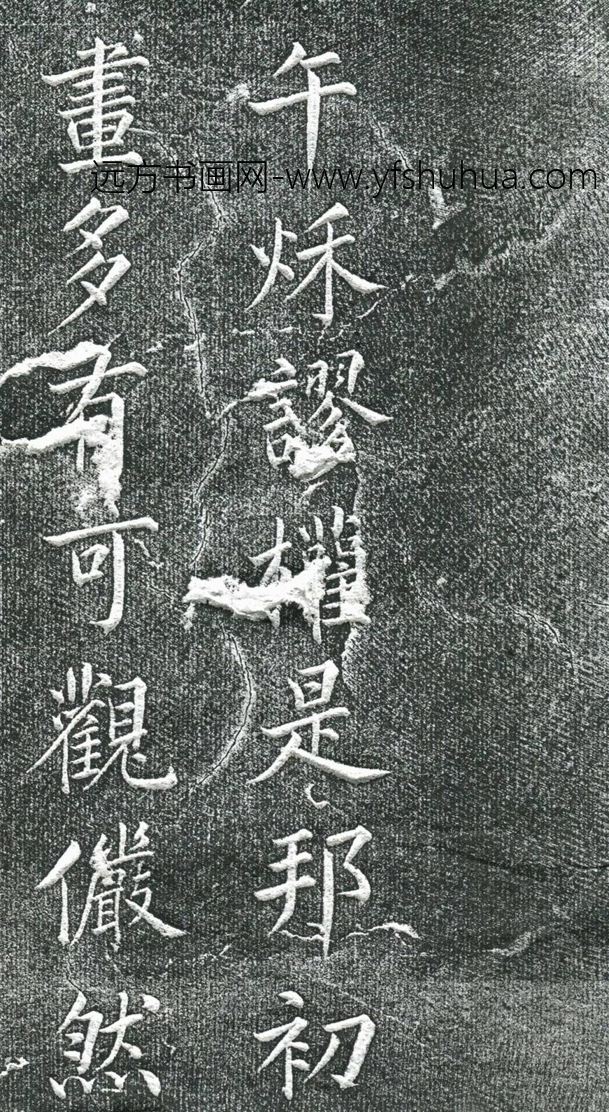 午秌謬權是邦初
畫多有可觀儼然
远方书画网-www.yfshuhua.com